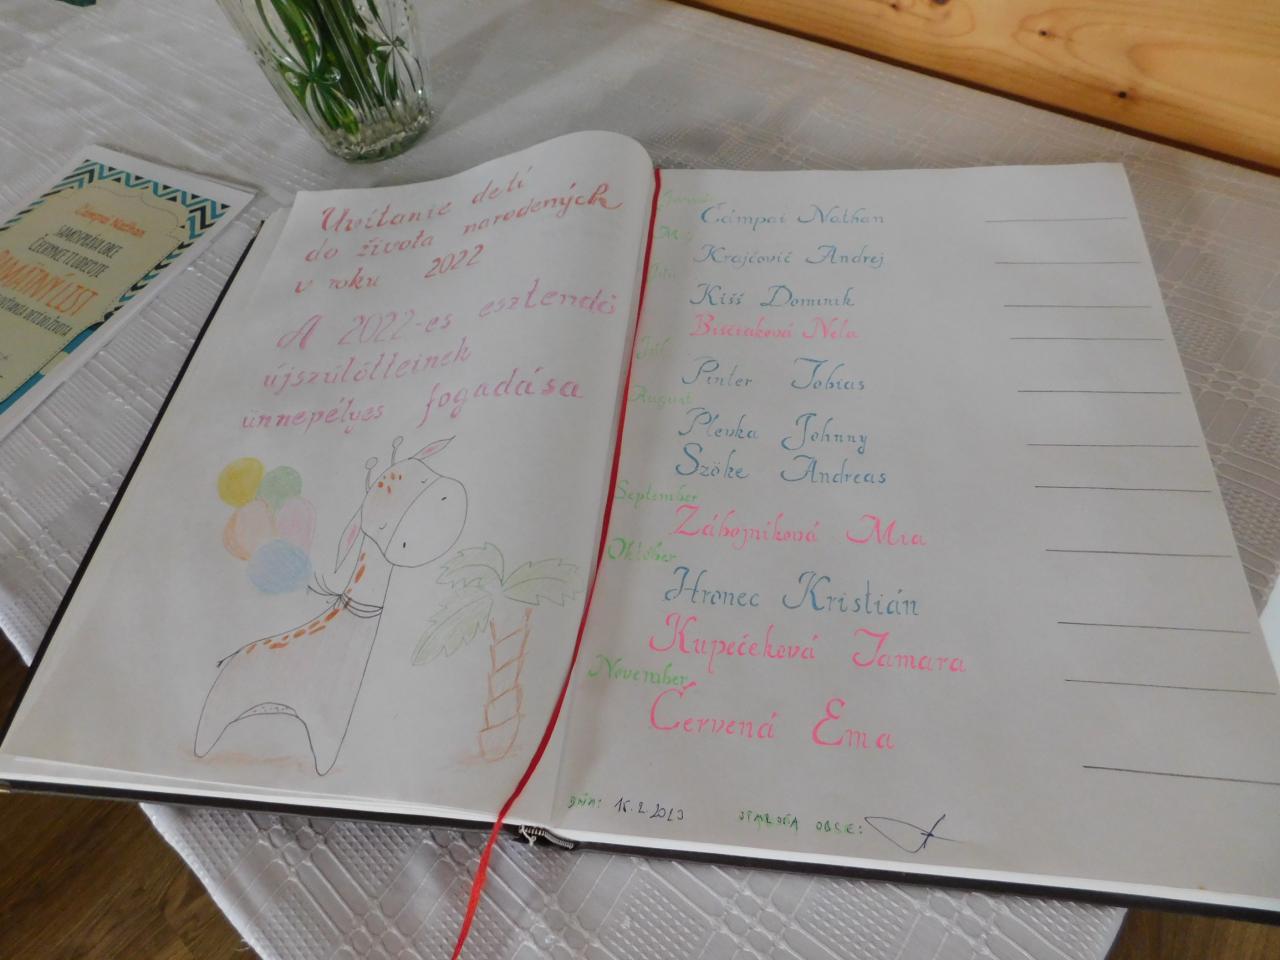 Čámpai Nathan
SAMOSPRÁVA OBCE
PAMÄTNÝ LIST
Uvítanie detí
do života narodených
v roku 2022
A 2022-es esztendei
újszülötteinek
ünnepélyes fogadása
Január
Cámpai Nathan
Krajčovič Andrej
Kišš Dominik
Bisciaková Nela
Júl
Pinter Tobias
August
Plevka Johnny
Szöke Andreas
September
Zábojníková Mia
Október
Hronec Kristián
Kupečeková Tamara
November
Červená Ema
DŇA: 15.2.2023 STAROSTA OBCE: